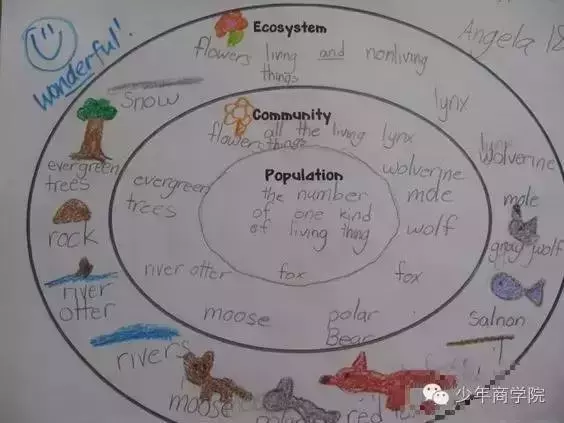 wonderful!
Angela
Ecosystem
flowers living and nonliving
things
snow
lynx
Community
flowers all the living lynx
things
wolverine
wolverine
evergreen
trees
evergreen
trees
Population
the number
of one kind
of living thing
mole
mole
wolf
gray wolf
rock
river otter
fox
fox
river
otter
salmon
moose
polar
Bear
rivers
moose
red
少年商学院